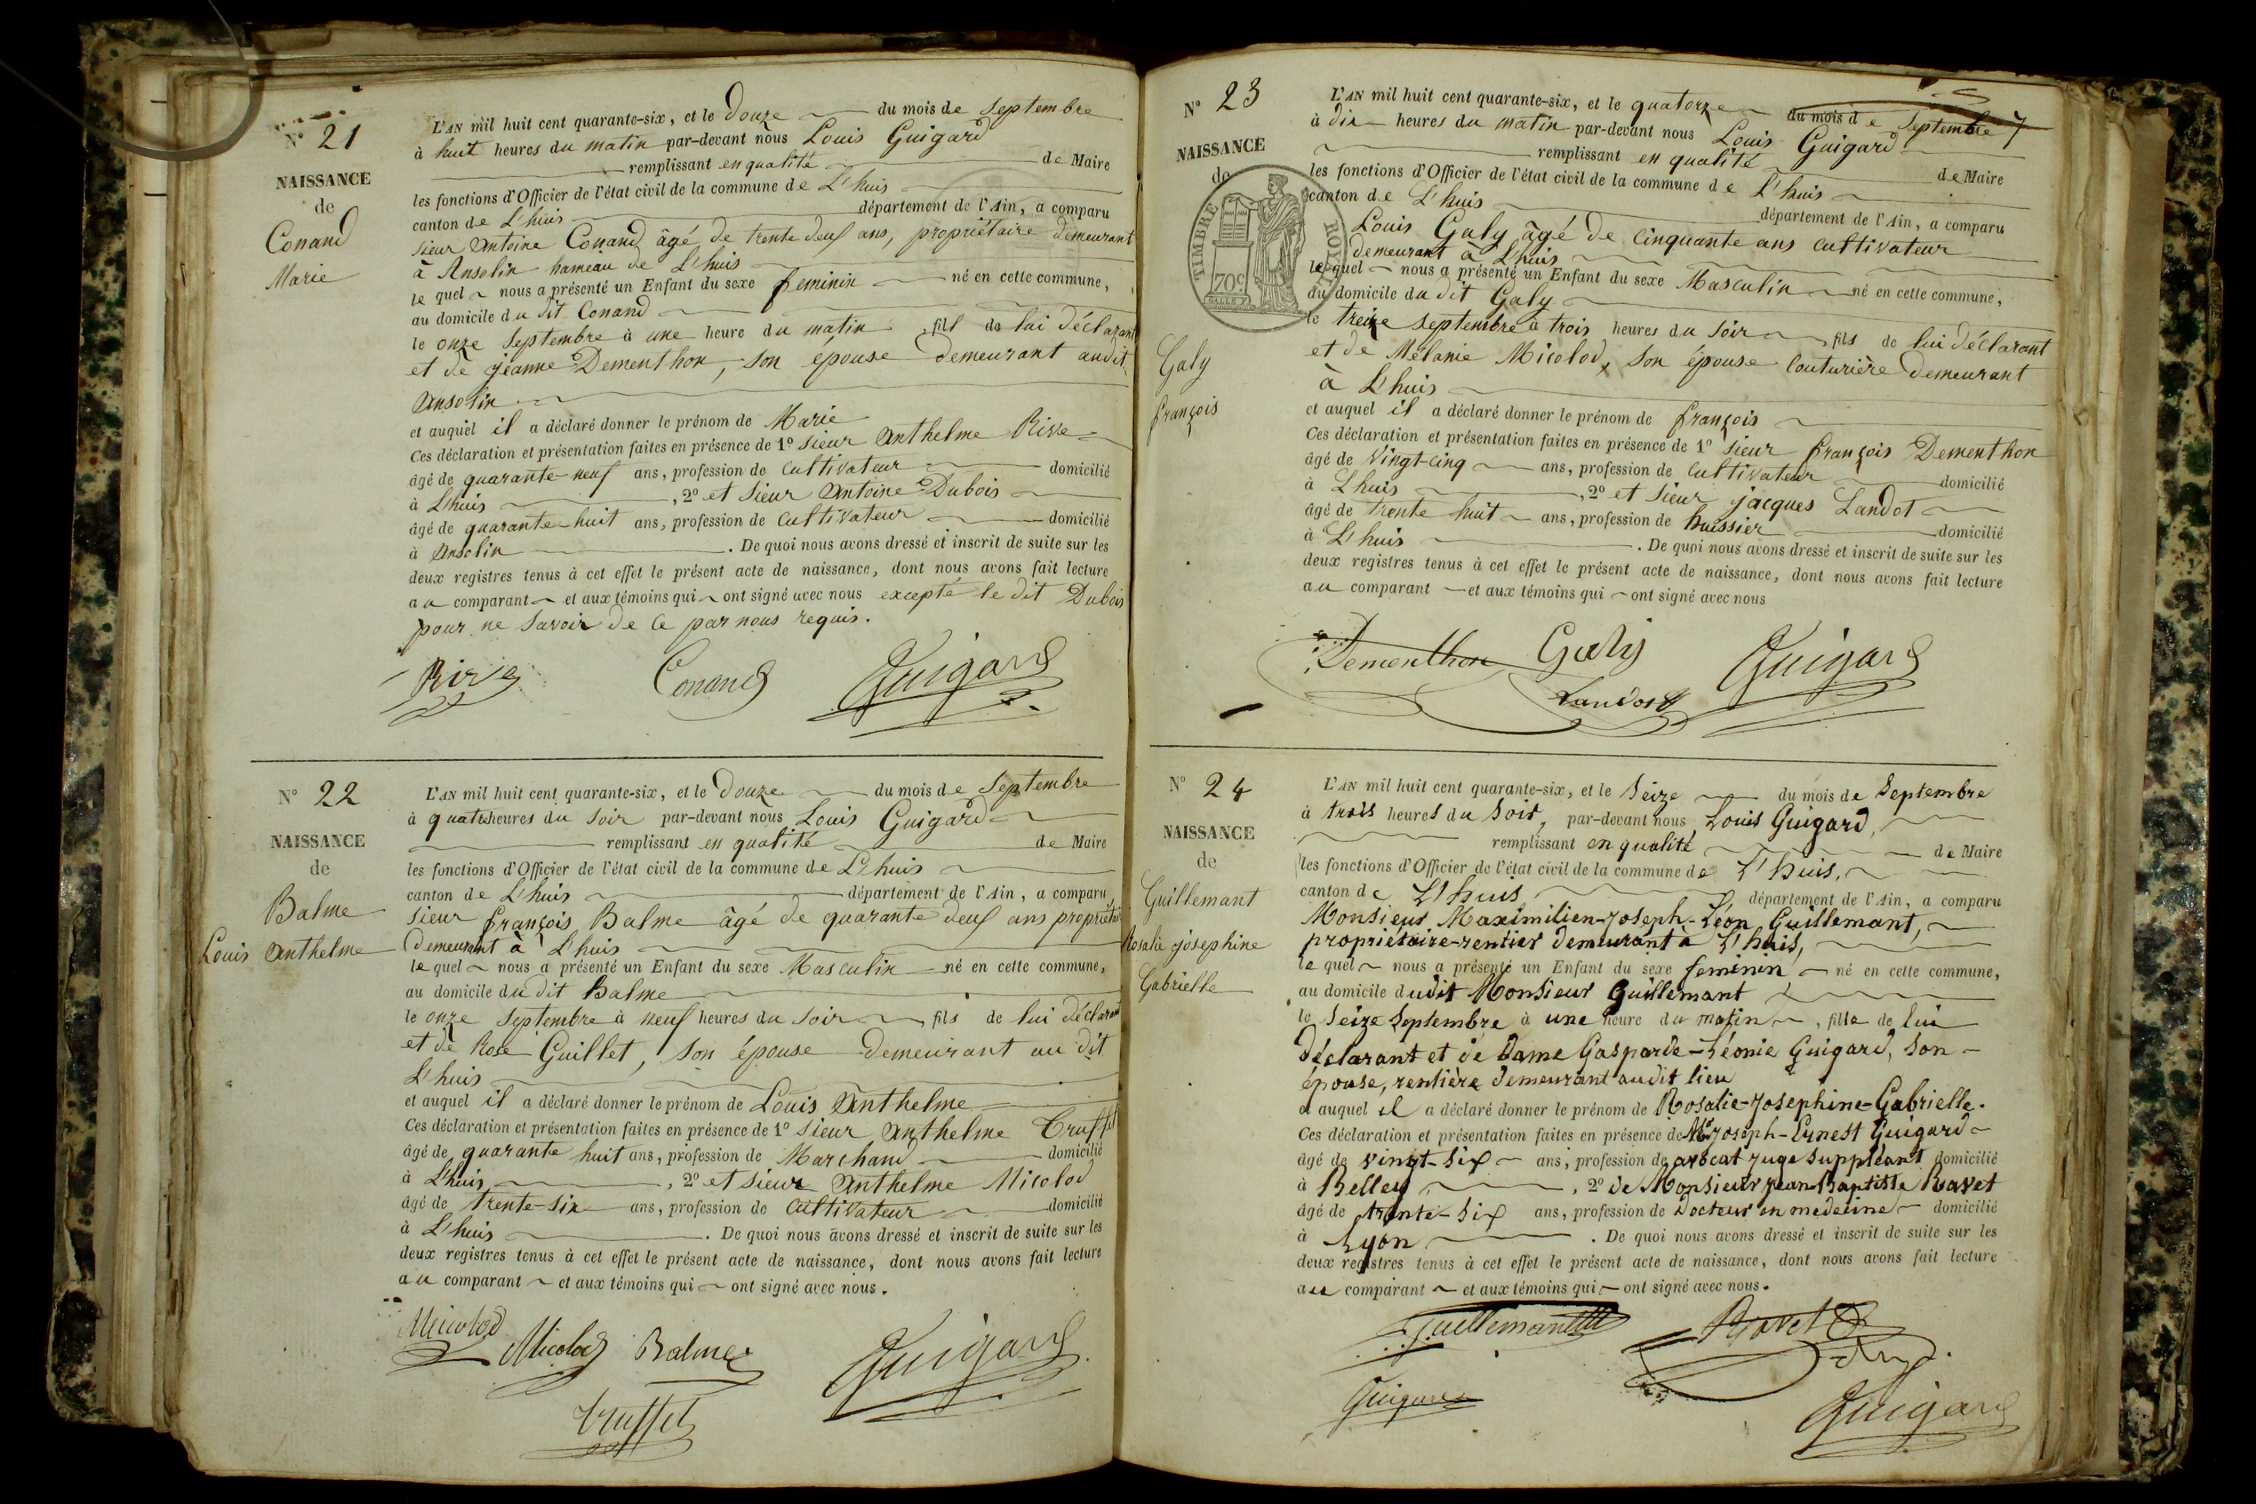 N° 21
NAISSANCE
de
Conand
Marie
L'AN mil huit cent quarante-six, et le Douze du mois de Septembre
à huit heures du matin par-devant nous Louis Guigard
remplissant en qualité de Maire
les fonctions d'Officier de l'état civil de la commune de L'huis
canton de L'huis département de l'Ain, a comparu
sieur Antoine Conand âgé de trente deux ans, propriétaire demeurant
à Ansolin hameau de L'huis
le quel nous a présenté un Enfant du sexe feminin né en cette commune,
au domicile du dit Conand
le onze Septembre à une heure du matin fils de lui déclarant
et de jeanne Dementhon, son épouse demeurant audit
Ansolin
et auquel il a déclaré donner le prénom de Marie
Ces déclaration et présentation faites en présence de 1° sieur Anthelme Rive
âgé de quarante-neuf ans, profession de Cultivateur domicilié
à Lhuis, 2° et sieur Antoine Dubois
âgé de quarante-huit ans, profession de Cultivateur domicilié
à Ansolin. De quoi nous avons dressé et inscrit de suite sur les
deux registres tenus à cet effet le présent acte de naissance, dont nous avons fait lecture
au comparant et aux témoins qui ont signé avec nous excepté le dit Dubois
pour ne savoir de ce par nous requis.
Rive Conand Guigard
N° 22
NAISSANCE
de
Balme
Louis Anthelme
L'AN mil huit cent quarante-six, et le Douze du mois de Septembre
à quatre heures du Soir par-devant nous Louis Guigard
remplissant en qualité de Maire
les fonctions d'Officier de l'état civil de la commune de L'huis
canton de L'huis département de l'Ain, a comparu
sieur françois Balme âgé de quarante deux ans
demeurant à L'huis
le quel nous a présenté un Enfant du sexe Masculin né en cette commune,
au domicile du dit Balme
le onze Septembre à neuf heures du Soir, fils de lui déclarant
et de Rose Guillet, son épouse demeurant au dit
L'huis
et auquel il a déclaré donner le prénom de Louis Anthelme
Ces déclaration et présentation faites en présence de 1° sieur Anthelme Truffet
âgé de quarante huit ans, profession de Marchand domicilié
à L'huis, 2° et sieur Anthelme Micolod
âgé de trente-six ans, profession de Cultivateur domicilié
à L'huis. De quoi nous avons dressé et inscrit de suite sur les
deux registres tenus à cet effet le présent acte de naissance, dont nous avons fait lecture
au comparant et aux témoins qui ont signé avec nous.
Micolod Micolod Balme Guigard
Truffet
N° 23
NAISSANCE
de
TIMBRE ROYAL
70c
Galy
françois
L'AN mil huit cent quarante-six, et le quatorze du mois de Septembre
à dix heures du matin par-devant nous Louis Guigard
remplissant en qualité de Maire
les fonctions d'Officier de l'état civil de la commune de L'huis
canton de L'huis département de l'Ain, a comparu
Louis Galy âgé de cinquante ans cultivateur
demeurant à Lhuis
le quel nous a présenté un Enfant du sexe Masculin né en cette commune,
au domicile du dit Galy
le treize septembre à trois heures du soir, fils de lui déclarant
et de Mélanie Micolod, son épouse couturière demeurant
à L'huis
et auquel il a déclaré donner le prénom de françois
Ces déclaration et présentation faites en présence de 1° sieur françois Dementhon
âgé de vingt-cinq ans, profession de Cultivateur domicilié
à Lhuis, 2° et sieur jacques Landot
âgé de trente huit ans, profession de huissier domicilié
à L'huis. De quoi nous avons dressé et inscrit de suite sur les
deux registres tenus à cet effet le présent acte de naissance, dont nous avons fait lecture
au comparant et aux témoins qui ont signé avec nous
Dementhon Galy Guigard
Landot
N° 24
NAISSANCE
de
Guillemant
Rosalie josephine
Gabrielle
L'AN mil huit cent quarante-six, et le Seize du mois de Septembre
à trois heures du Soir, par-devant nous Louis Guigard,
remplissant en qualité de Maire
les fonctions d'Officier de l'état civil de la commune de L'huis,
canton de L'huis département de l'Ain, a comparu
Monsieur Maximilien-Joseph-Léon Guillemant,
propriétaire-rentier demeurant à L'huis,
le quel nous a présenté un Enfant du sexe feminin né en cette commune,
au domicile dudit Monsieur Guillemant
le Seize Septembre à une heure du matin, fille de lui
Déclarant et de Dame Gasparde-Léonie Guigard, Son
épouse, rentière demeurant audit lieu
et auquel il a déclaré donner le prénom de Rosalie-Josephine-Gabrielle.
Ces déclaration et présentation faites en présence de Mr Joseph-Ernest Guigard
âgé de vingt-six ans, profession de avocat juge suppléant domicilié
à Belley, 2° de Monsieur Jean-Baptiste Ravet
âgé de trente-six ans, profession de Docteur en medecine domicilié
à Lyon. De quoi nous avons dressé et inscrit de suite sur les
deux registres tenus à cet effet le présent acte de naissance, dont nous avons fait lecture
au comparant et aux témoins qui ont signé avec nous.
Guillemant Ravet
Guigard Guigard